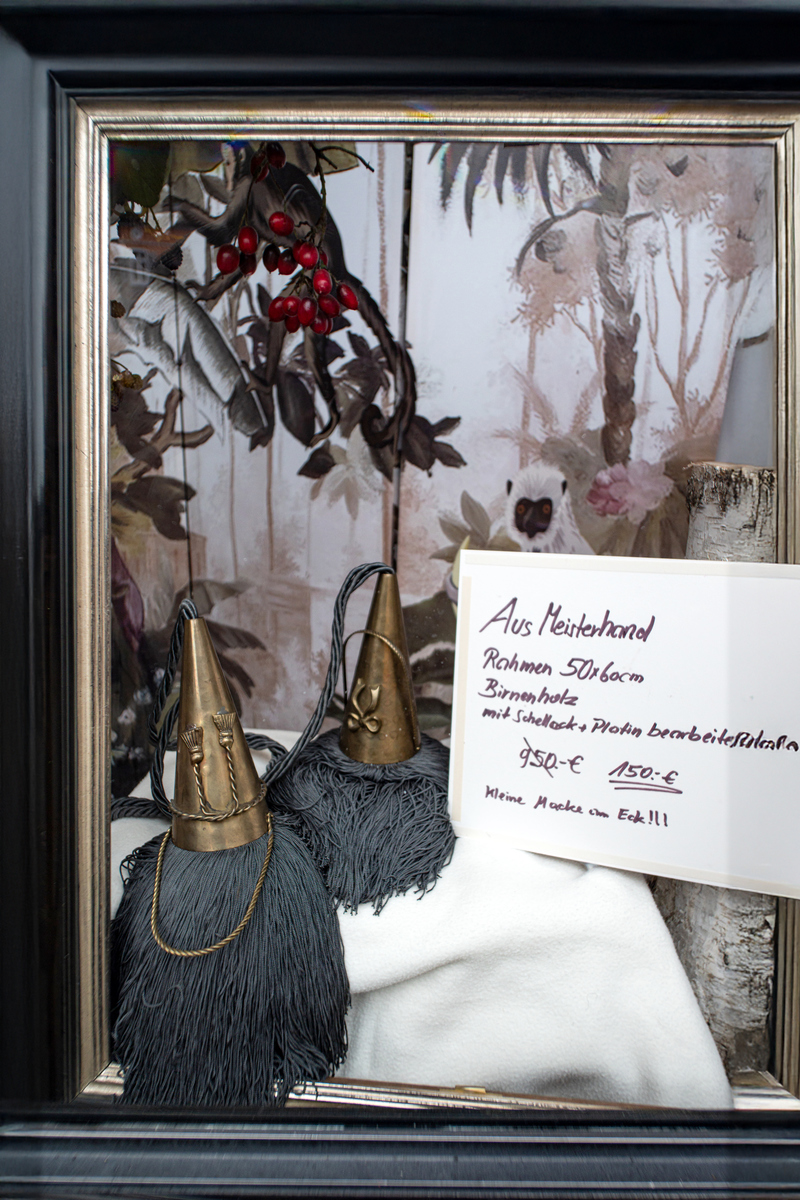 Aus Meisterhand
Rahmen 50x60cm
Birnenholz
mit Schellack + Platin bearbeitet
950.-€ 150.-€
kleine Macke im Eck!!!